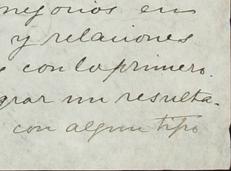 negocios en
y relaciones
con lo primero.
grar un resulta-
con algun tipo